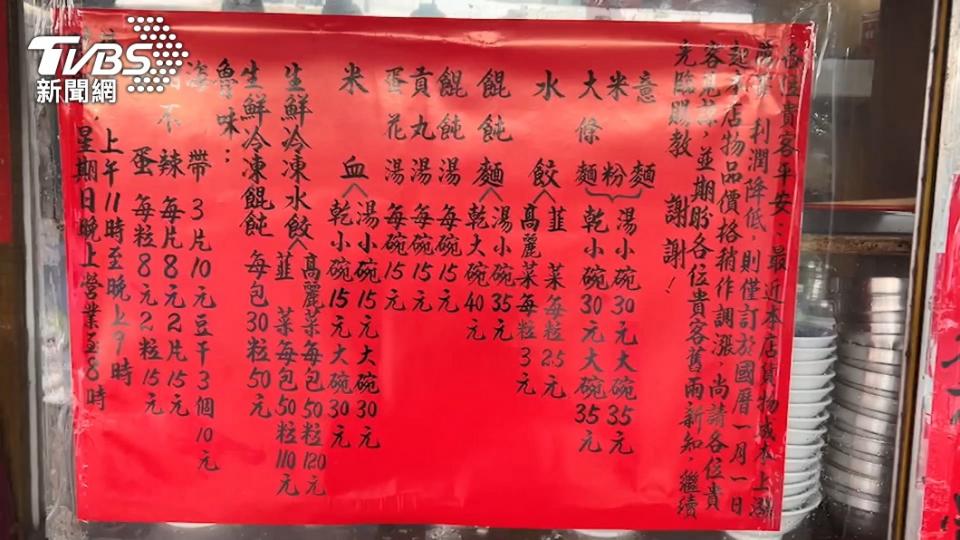 各位貴客平安、最近本店貨物成本上漲
利潤降低，則僅訂於國曆一月一日
起本店物品價格稍作調漲，尚請各位貴
客見諒，並期盼各位貴客舊雨新知，繼續
光臨賜教 謝謝！
意麵
米粉 湯小碗30元大碗35元
大條麵 乾小碗30元大碗35元
水餃 韮菜每粒2.5元
高麗菜每粒3元
餛飩麵 湯小碗35元
乾大碗40元
餛飩湯每碗15元
貢丸湯每碗15元
蛋花湯每碗15元
米血 湯小碗15元大碗30元
乾小碗15元大碗30元
生鮮冷凍水餃 高麗菜每包50粒120元
韮菜每包50粒110元
生鮮冷凍餛飩每包30粒50元
魯味：
海帶3片10元豆干3個10元
不辣每片8元2片15元
蛋每粒8元2粒15元
上午11時至晚上9時
星期日晚上營業至8時
TVBS
新聞網